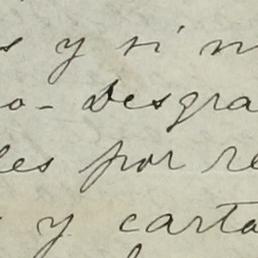 s y si n
o- desgra
les por re
y carta